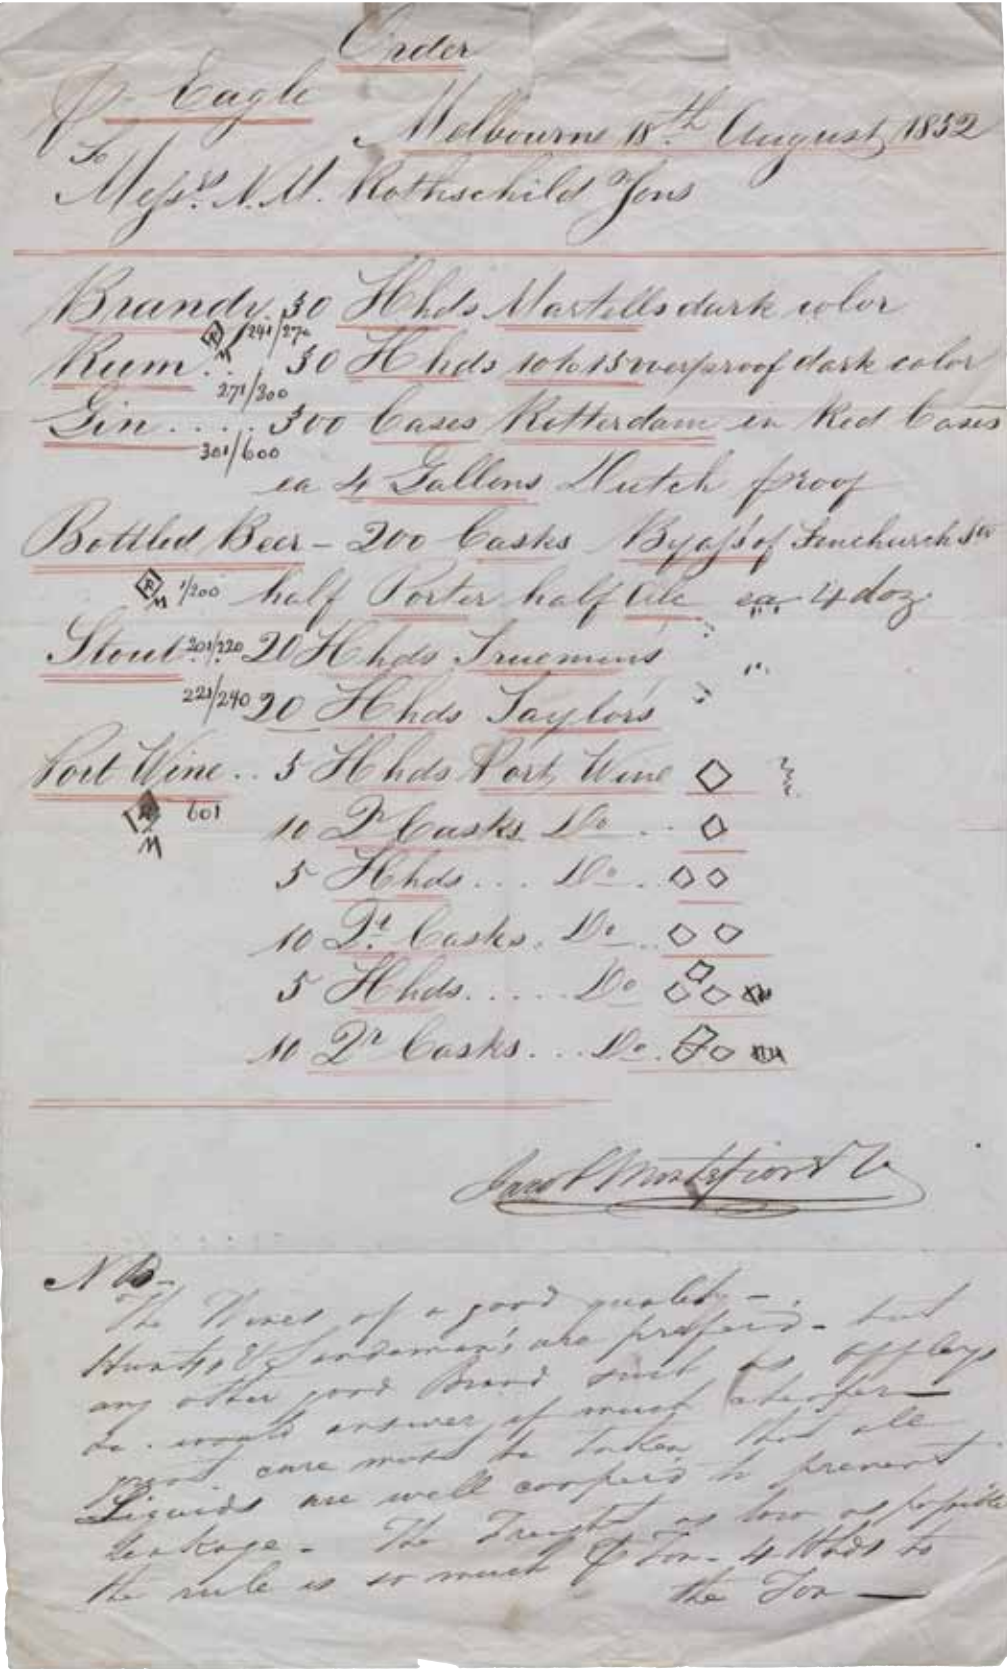 Order
P Eagle
Melbourne 18th August 1852
To
Messrs N. M. Rothschild & Sons
Brandy. 30 Hhds Martells dark color
R M 241/270
Rum .. 30 Hhds 10 to 15 overproof dark color
271/300
Gin .... 300 Cases Rotterdam in Red Cases
301/600
ea 4 Gallons Dutch proof
Bottled Beer – 200 Casks Byass's of Fenchurch Str
R M 1/200 half Porter half Ale ea 4 doz
Stout 201/220 20 Hhds Truemans
221/240 20 Hhds Taylors
Port Wine .. 5 Hhds Port Wine ◇
R M 601
10 Qr Casks Do .. ◇
5 Hhds .... Do .. ◇◇
10 Qr Casks. Do .. ◇◇
5 Hhds ..... Do ◇◇◇
10 Qr Casks ... Do. ◇◇◇
Jacob Montefiore & Co
NB –
The Wines of a good quality –
Hunts & Sandeman's are prefered – but
any other good Brand such as Offleys
&c. would answer if much cheaper –
great care must be taken that all
Liquids are well cooper'd to prevent
leakage – The Freight as low as possible
the rule is so much P Ton – 4 Hhds to
the Ton —